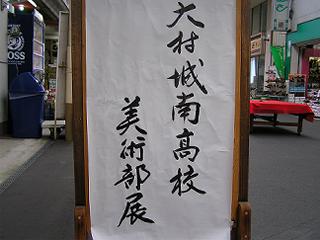 大村城南高校
美術部展
BOSS